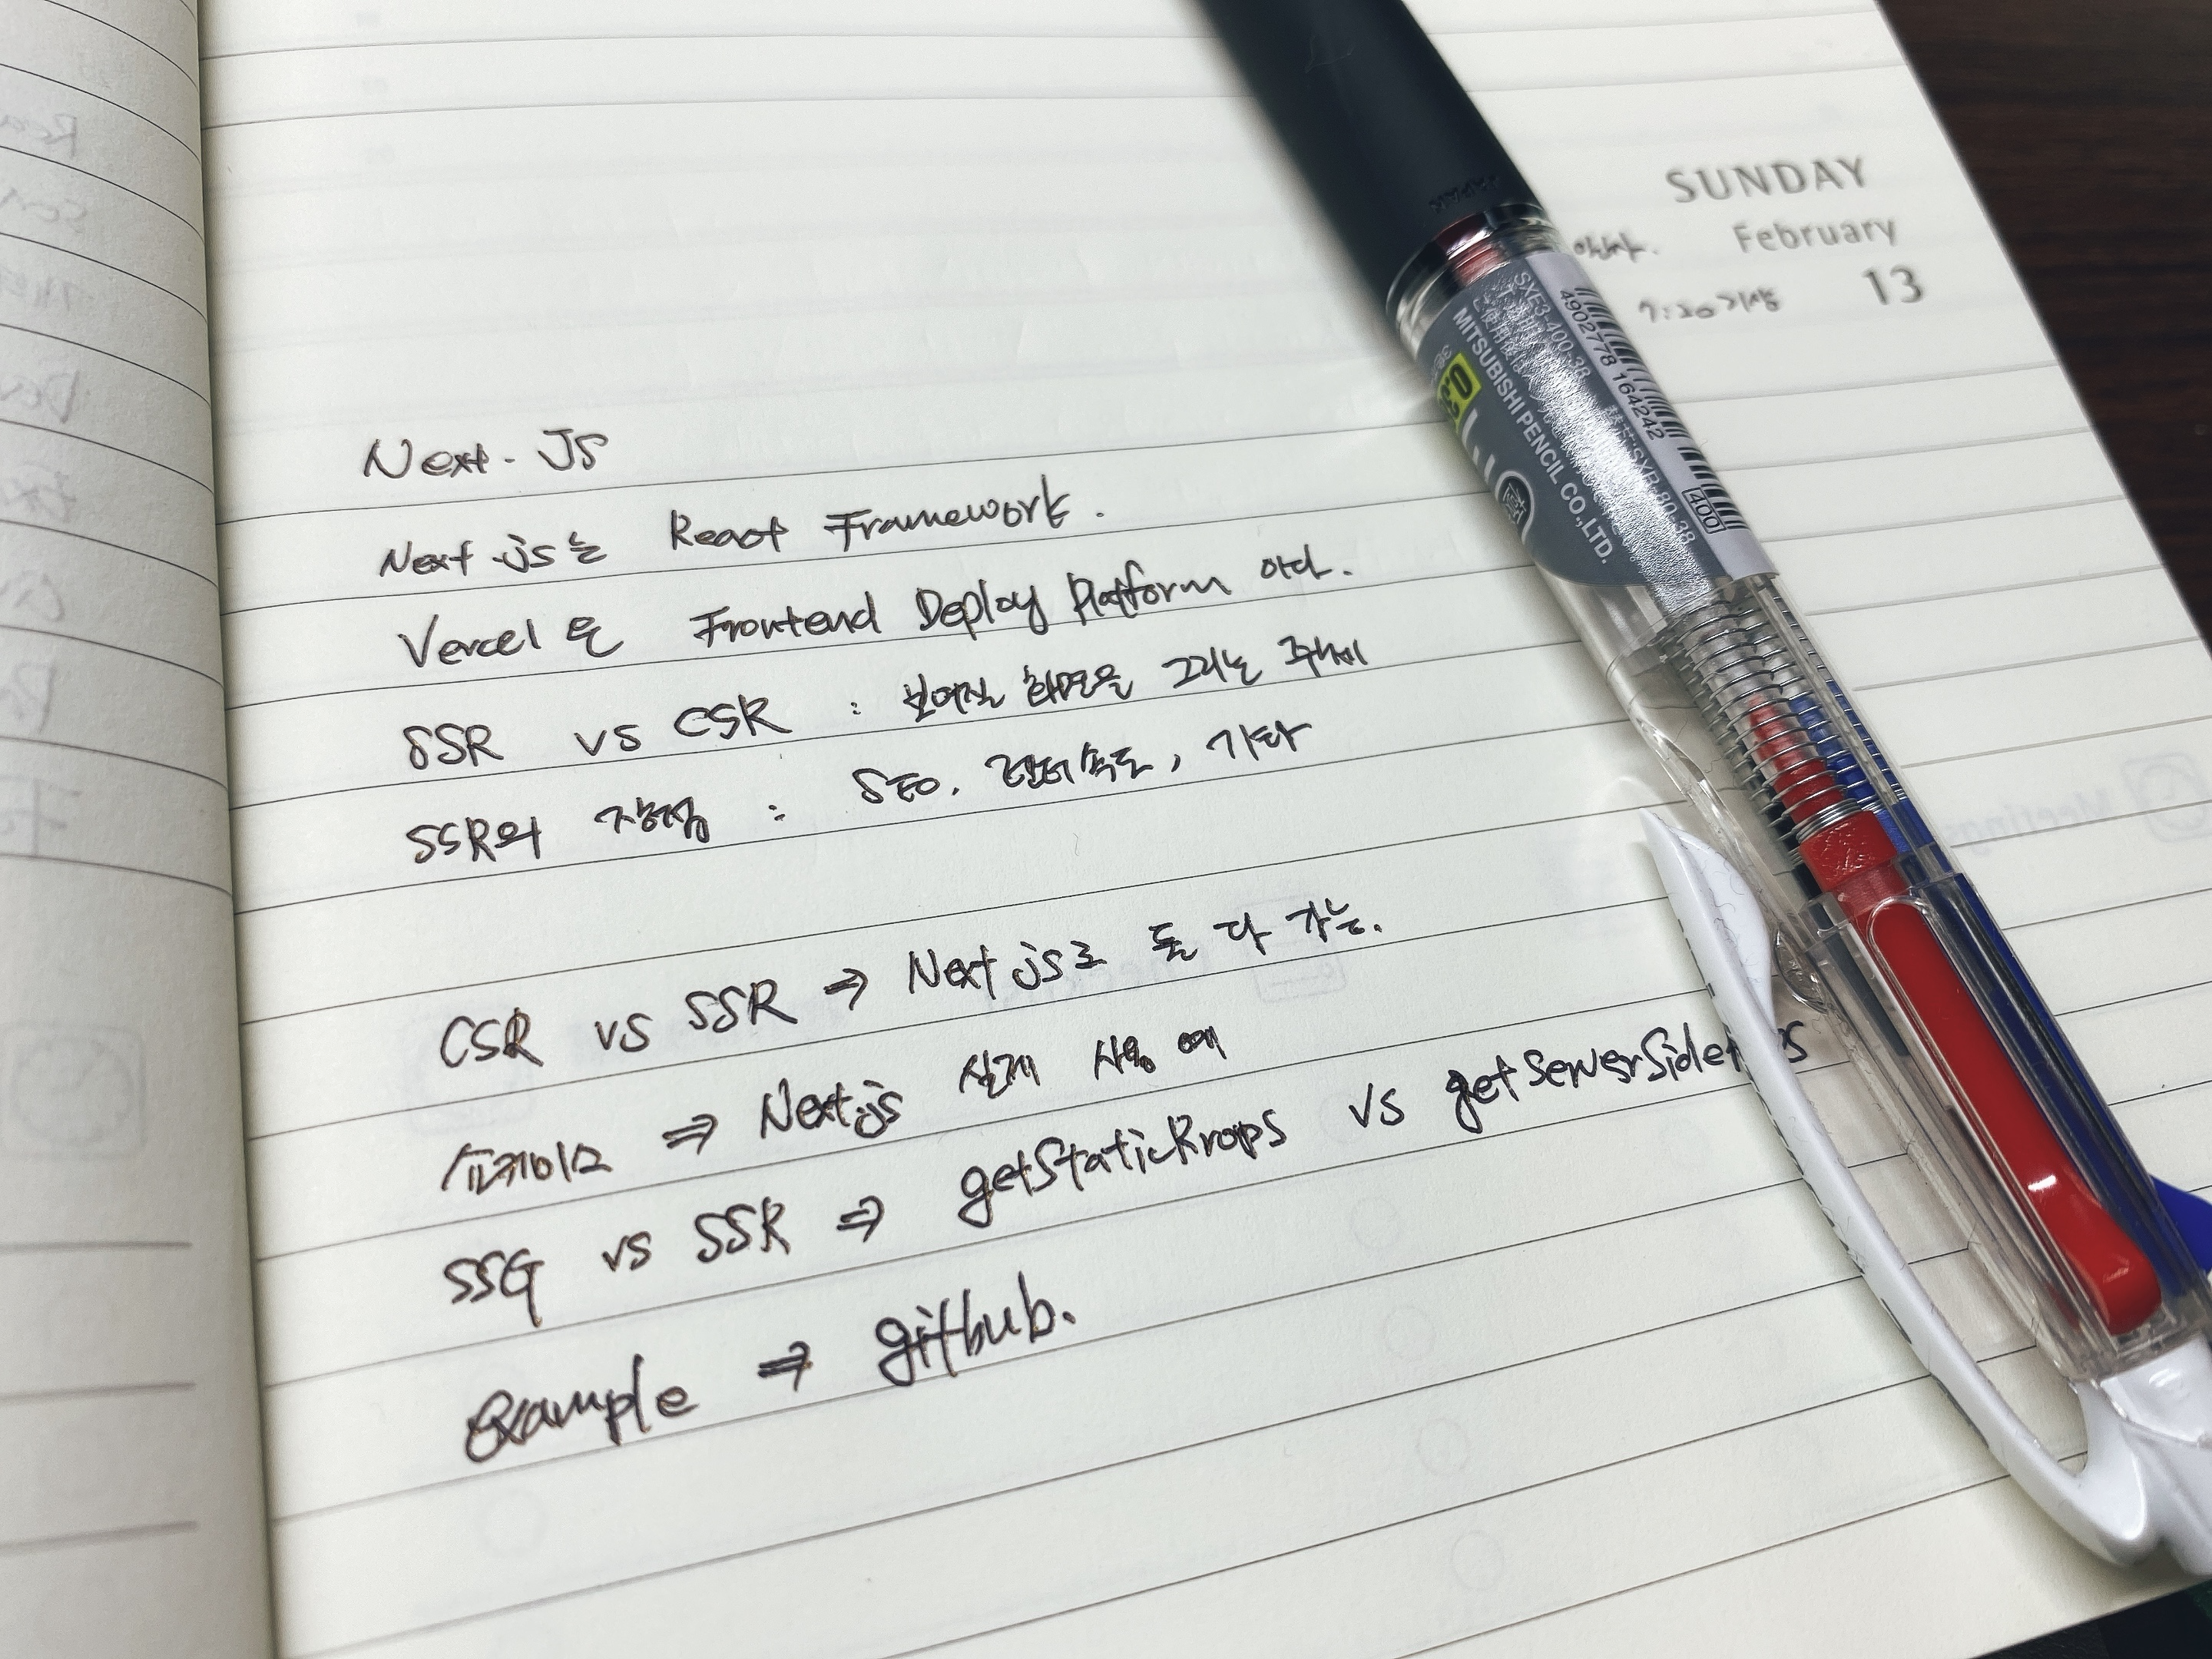 SUNDAY
February
13
7:30 기상
Next.JS
Next.js는 React Framework.
Vercel은 Frontend Deploy Platform 이다.
SSR vs CSR : 보여질 화면을 그리는 주체
SSR의 장점 : SEO, 렌더속도, 기타
CSR vs SSR ⇒ Next js로 둘 다 가능.
쇼케이스 ⇒ Next.js 실제 사용 예
SSG vs SSR ⇒ getStaticProps vs getServerSide
example ⇒ github.
MITSUBISHI PENCIL CO.,LTD.
SXE3-400-38
4902778 164242
SXR-80-38
400
Meetings